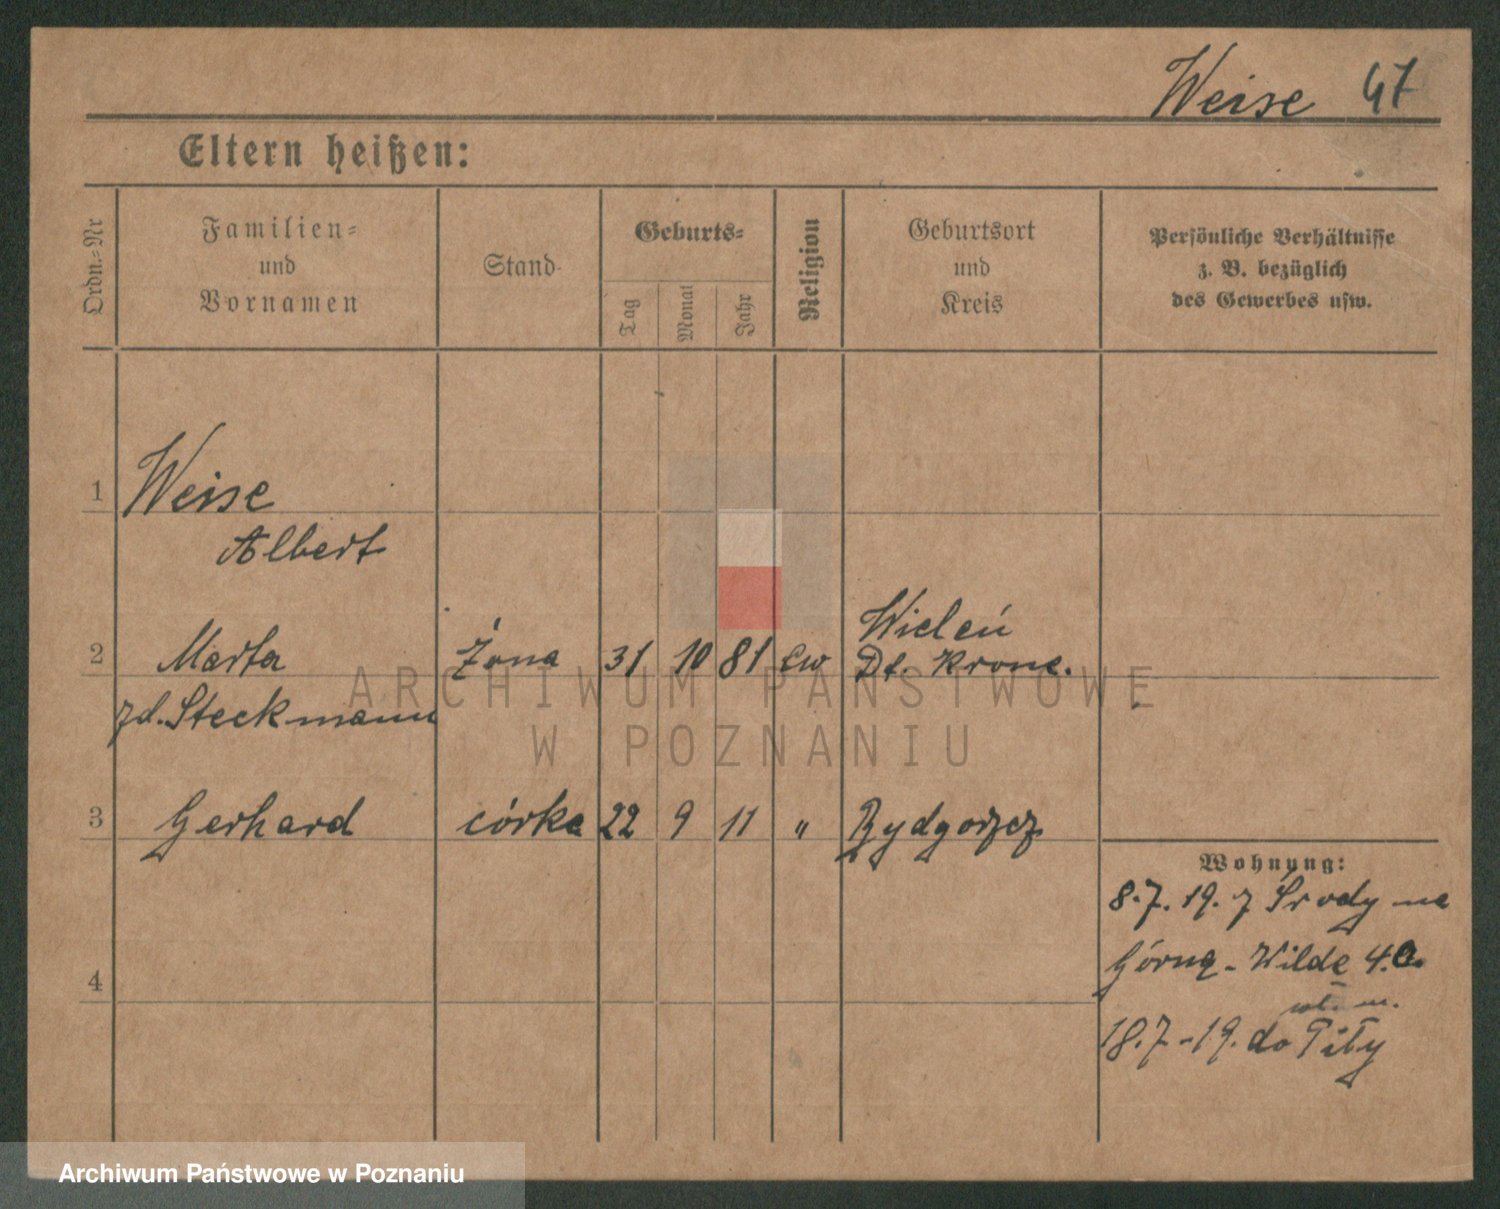 Weise 47
Eltern heißen:
Ordn.-Nr
Familien-
und
Vornamen
Stand
Geburts-
Tag
Monat
Jahr
Religion
Geburtsort
und
Kreis
Persönliche Verhältnisse
z. B. bezüglich
des Gewerbes usw.
1 Weise
Albert
Wieleń
2 Marta Żona 31 10 81 ew Dt. Krone.
zd. Steckmann
3 Gerhard córka 22 9 11 " Bydgoszcz
Wohnung:
8.7.19. z Środy na
Górną-Wilde 4.
4
18.7-19. do Piły
ARCHIWUM PAŃSTWOWE
W POZNANIU
Archiwum Państwowe w Poznaniu